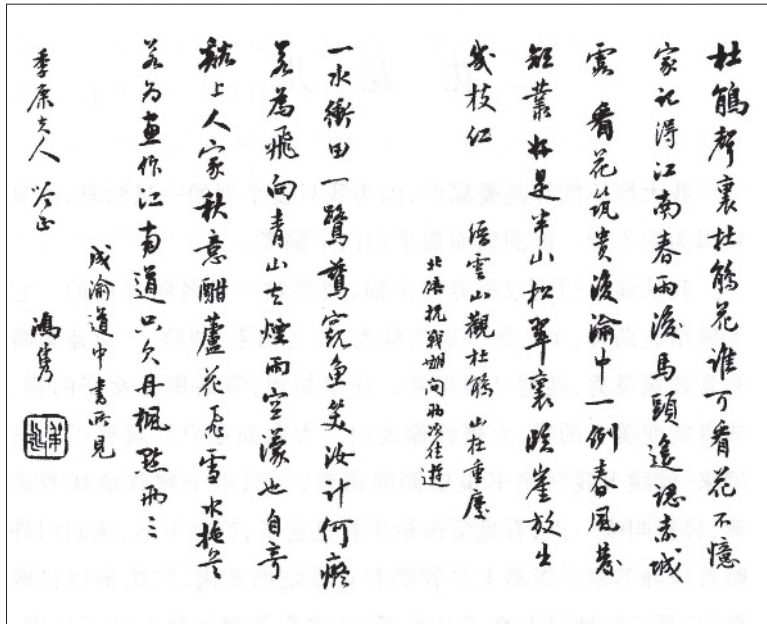 杜鵑聲裏杜鵑花誰可看花不憶
家記得江南春雨後馬頭遙認赤城
霞 看花筑貴復渝中一例春風著
短叢好是半山松翠裏臨崖放出
幾枝红 縉雲山觀杜鵑 山在重慶
北碚抗戰期間時往遊
一水衝田一鷺鶿窺魚笑汝計何癡
若為飛向青山去煙雨空濛也自奇
上人家秋意酣蘆花飛雪水拖藍
若為畫作江南道只欠丹楓點兩三
成渝道中書所見
季康夫人 正 鴻雋